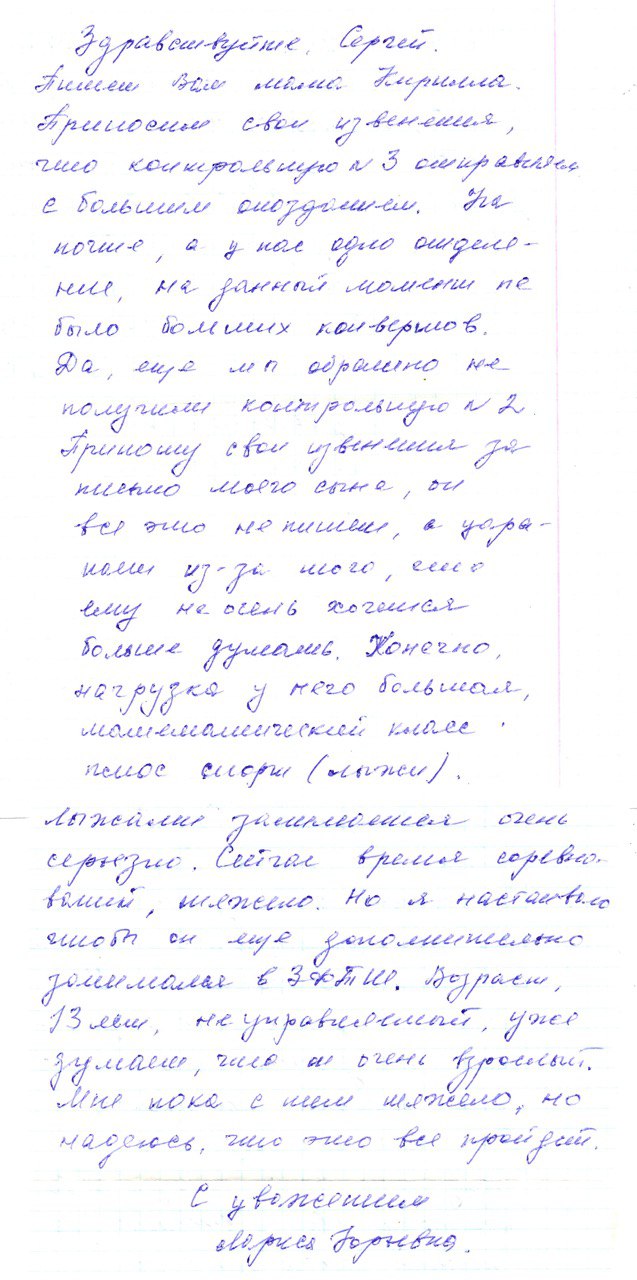 Здравствуйте, Сергей.
Пишет Вам мама Кирилла.
Приносим свои извенения,
что контрольную N 3 отправляем
с большим опозданием. На
почте, а у нас одно отделе-
ние, на данный момент не
было больших конвертов.
Да, еще мы обратно не
получили контрольную N 2.
Приношу свои извенения за
письмо моего сына, он
все это не пишет, а цара-
пает из-за того, что
ему не очень хочется
больше думать. Конечно,
нагрузка у него большая,
математический класс
плюс спорт (лыжи).
Лыжами занимается очень
серьезно. Сейчас время соревно-
ваний, тяжело. Но я настаиваю
чтобы он еще дополнительно
занимался в ЗФТШ. Возраст,
13 лет, неуправляемый, уже
думает, что он очень взрослый.
Мне пока с ним тяжело, но
надеюсь, что это все пройдет.
С уважением
Лариса Юрьевна.